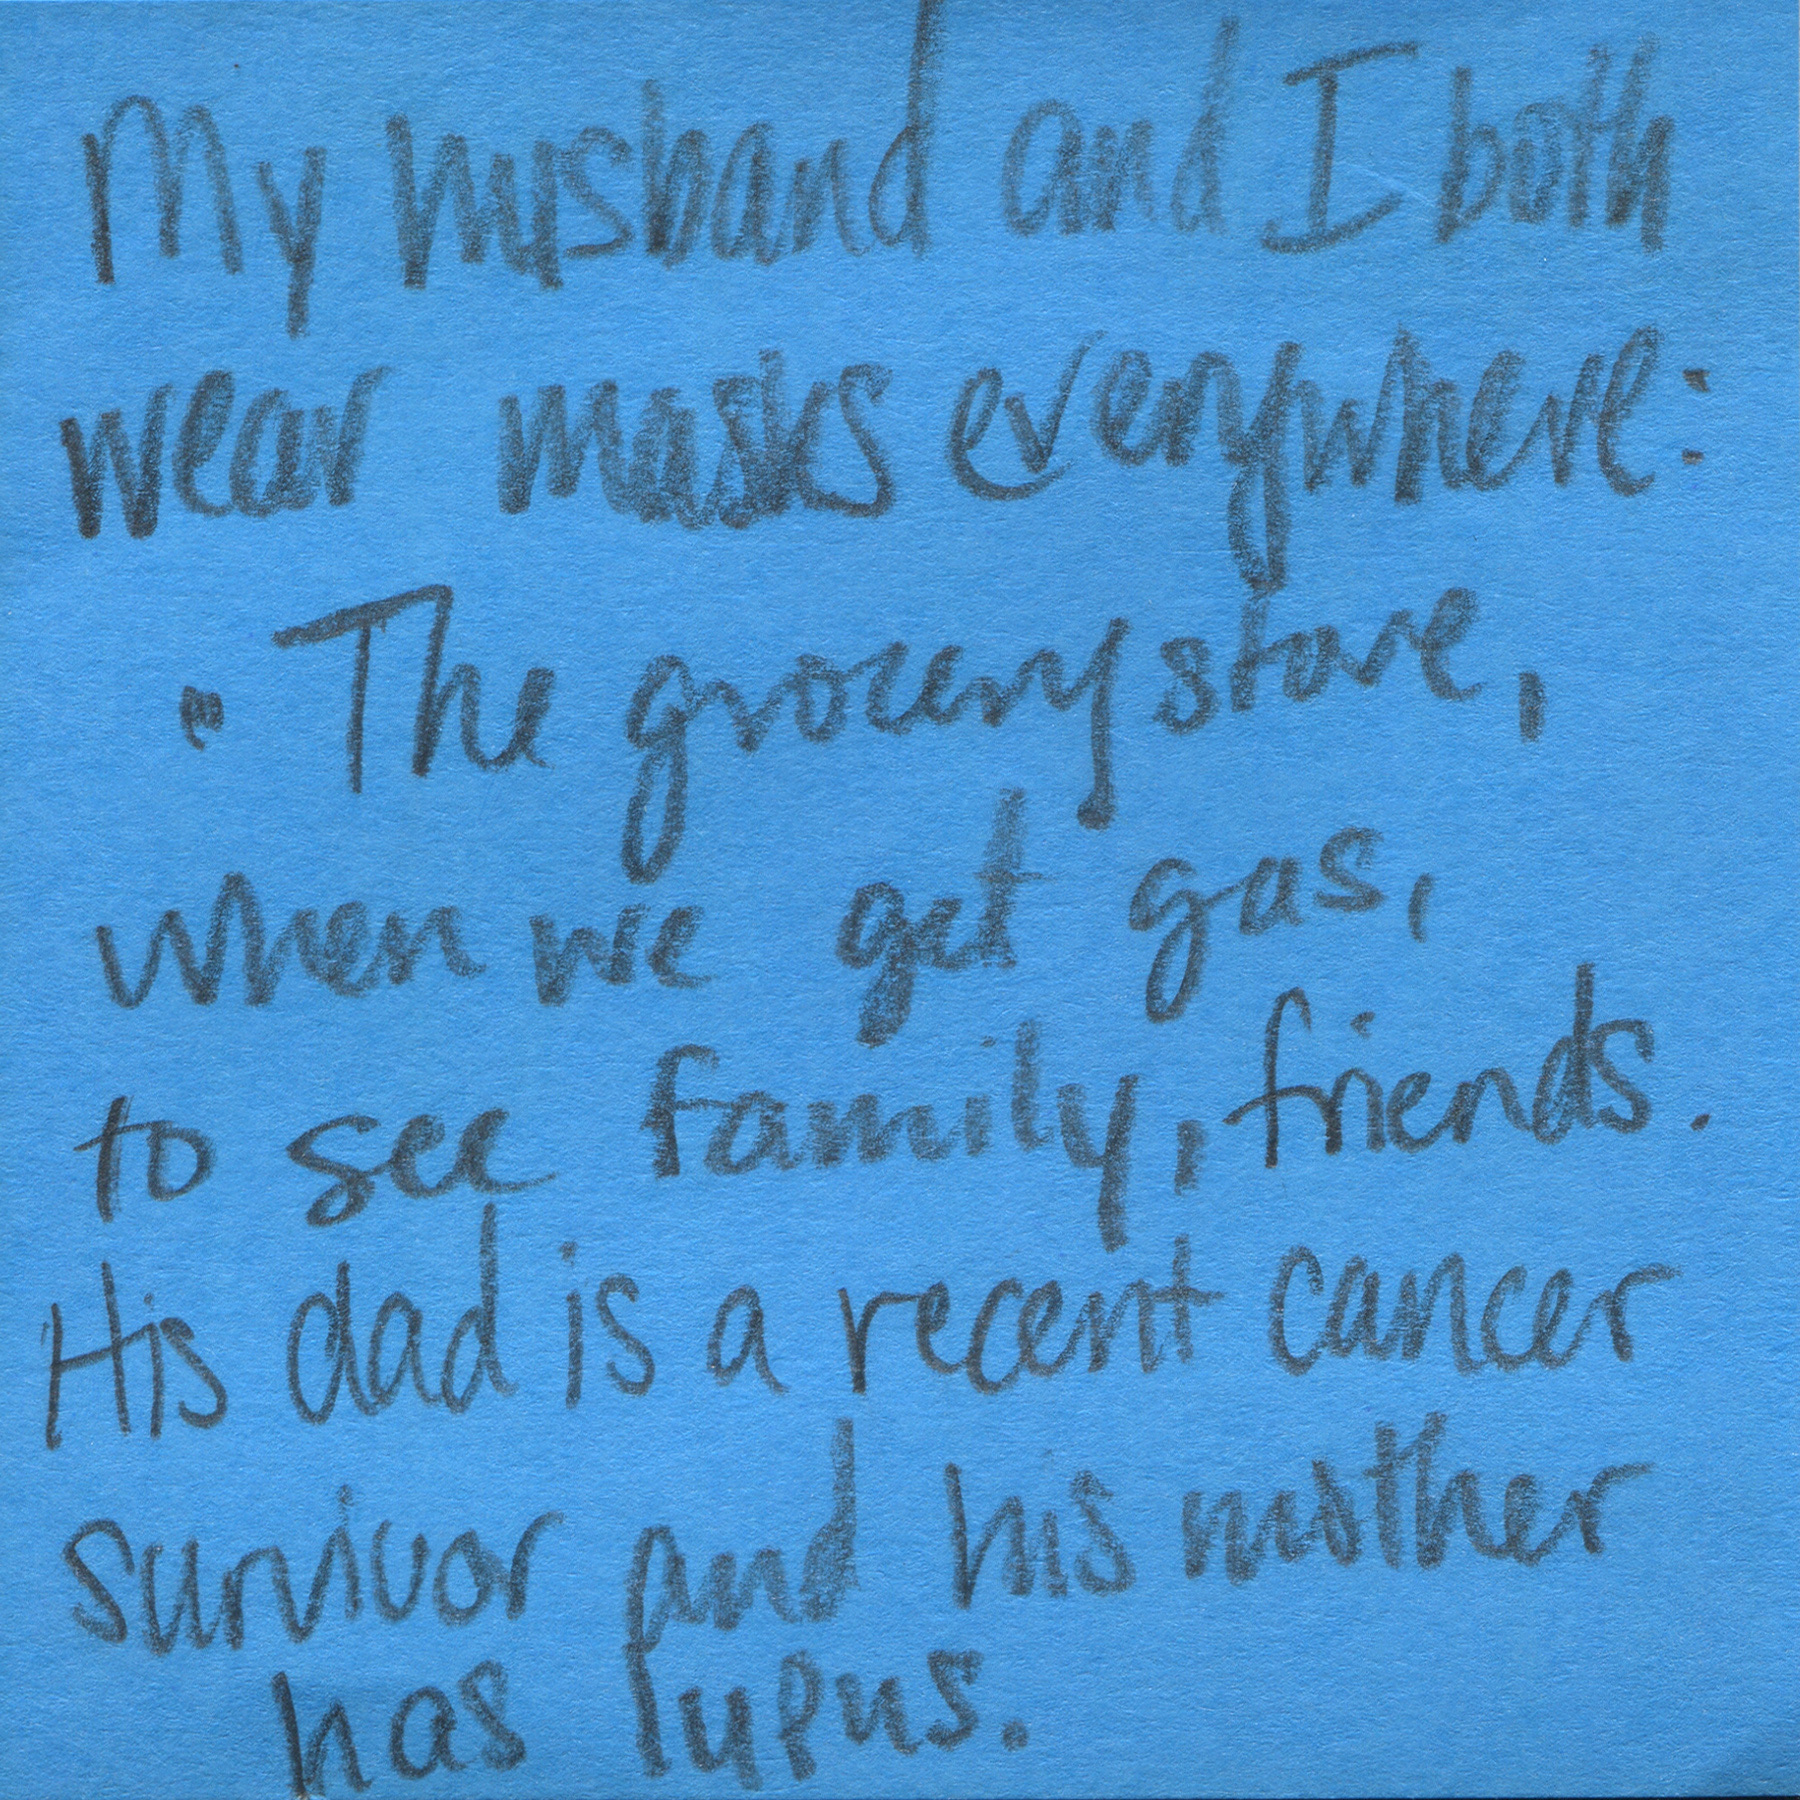 My husband and I both
wear masks everywhere:
• The grocery store,
when we get gas,
to see family, friends.
His dad is a recent cancer
survivor and his mother
has lupus.